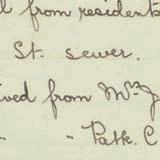 l from residenta
St. sewer.
ived from Mr. J
" " Path. C